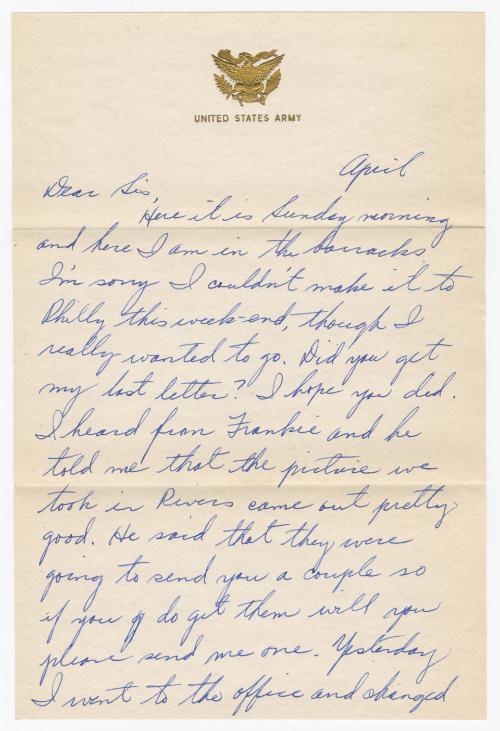 UNITED STATES ARMY
April
Dear Sis,
Here it is Sunday morning
and here I am in the barracks.
I'm sorry I couldn't make it to
Philly this week-end, though I
really wanted to go. Did you get
my last letter? I hope you did.
I heard from Frankie and he
told me that the picture we
took in Rivers came out pretty
good. He said that they were
going to send you a couple so
if you do get them will you
please send me one. Yesterday
I went to the office and changed